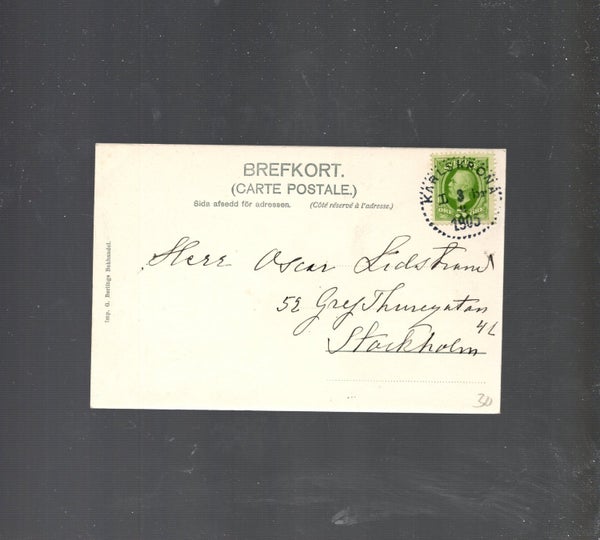 BREFKORT.
(CARTE POSTALE.)
Sida afsedd för adressen. (Côté réservé à l'adresse.)
KARLSKRONA
1905
Herr Oscar Lidstrand
52 Gref Thuregatan
4 L
Stockholm
Imp. G. Berlings Bokhandel.
30